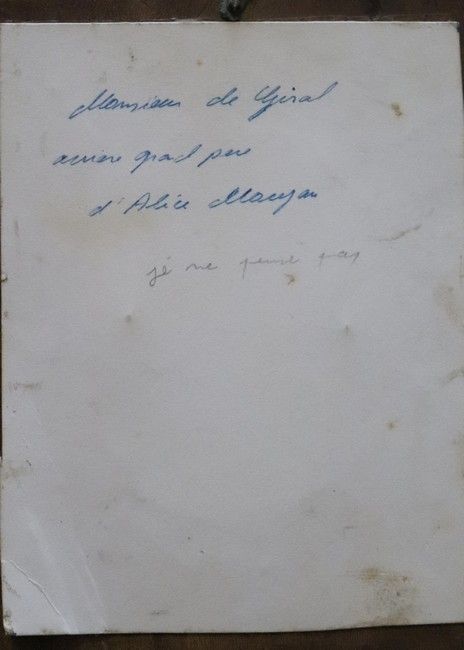 Monsieur de Giral
arriere grad pere
d'Alice
je ne pense pas